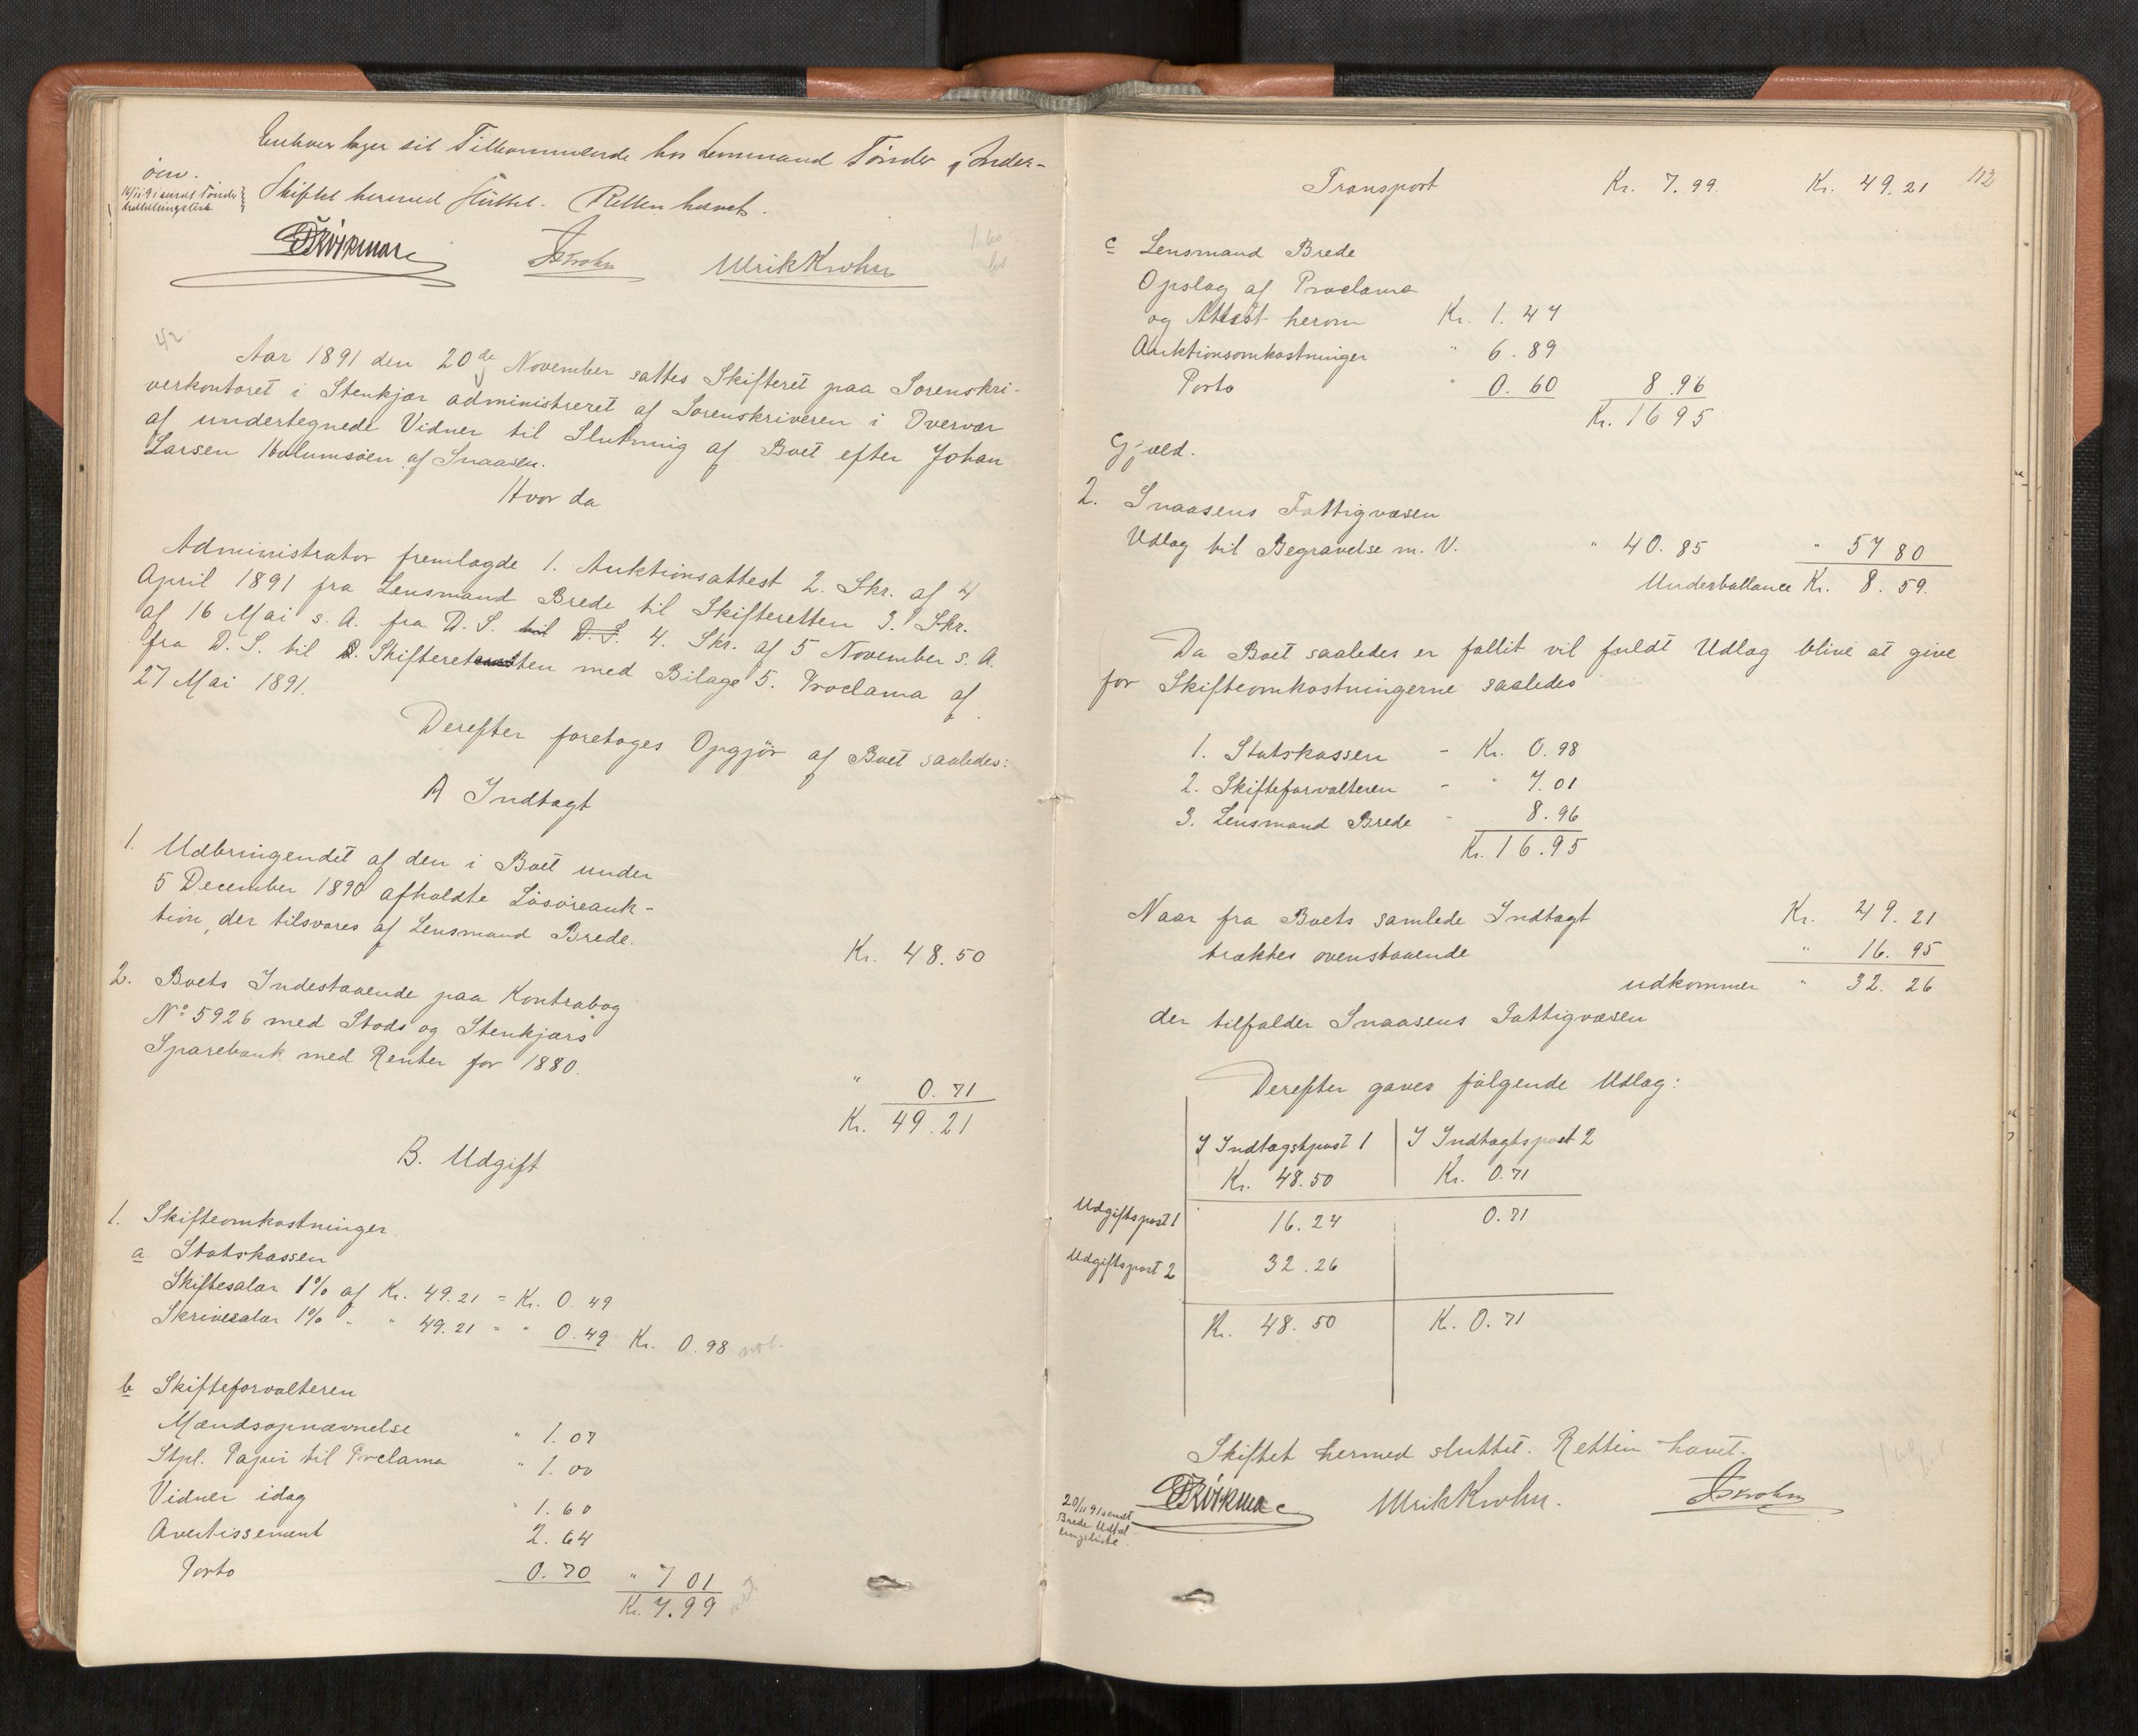 Enhver tager sit Tilkommende hos Lensmand Tönder i Inder-
öen.
16/11 91 sendt Tönder
Udtællingsliste
Skiftet hermed sluttet. Retten hævet.
Ulrik Krohn
42
Aar 1891 den 20de November sattes Skifteret paa Sorenskri-
verkontoret i Stenkjær administreret af Sorenskriveren i Overvær
af undertegnede Vidner til Slutning af Boet efter Johan
Larsen Holumsöen af Snaasen.
Hvor da
Administrator fremlagde 1. Auktionsattest 2. Skr. af 4
April 1891 fra Lensmand Brede til Skifteretten 3. Skr.
af 16 Mai s. A. fra D. S. til D. S. 4. Skr. af 5 November s. A.
fra D. S. til Skifteretten med Bilage 5. Proclama af
27 Mai 1891.
Derefter foretoges Opgjör af Boet saaledes:
A Indtægt
1. Udbringendet af den i Boet under
5 December 1890 afholdte Lösöreauk-
tion, der tilsvares af Lensmand Brede. Kr. 48.50
2. Boets Indestaaende paa Kontrabog
No 5926 med Stods og Stenkjærs
Sparebank med Renter for 1880. " 0.71
Kr. 49.21
B. Udgift
1. Skifteomkostninger
a Statskassen
Skiftesalær 1% af Kr. 49.21 = Kr. 0.49
Skrivesalær 1% " " 49.21 = " 0.49 Kr. 0.98 not.
b Skifteforvalteren
Mændsopnævnelse " 1.07
Stpl. Papir til Proclama " 1.00
Vidner idag " 1.60
Avertissement 2.64
Porto 0.70 " 7 01
Kr. 7.99
112
Transport Kr. 7.99. Kr. 49.21
c Lensmand Brede
Opslag af Proclama
og Attest herom Kr. 1.47
Auktionsomkostninger " 6.89
Porto " 0.60 8.96
Kr. 16 95
Gjæld.
2. Snaasens Fattigvæsen
Udlæg til Begravelse m. V. " 40.85 " 57 80
Underballance Kr. 8.59.
Da Boet saaledes er fallit vil fuldt Udlæg blive at give
for Skifteomkostningerne saaledes
1. Statskassen - Kr. 0.98
2. Skifteforvalteren - " 7.01
3. Lensmand Brede - 8.96
Kr. 16.95
Naar fra Boets samlede Indtægt Kr. 49.21
trækkes ovenstaaende " 16.95
udkommer " 32.26
der tilfalder Snaasens Fattigvæsen
Derefter gaves fölgende Udlæg:
I Indtægtspost 1 I Indtægtspost 2
Kr. 48.50 Kr. 0.71
Udgiftspost 1 16.24 0.71
Udgiftspost 2 32.26
Kr. 48.50 Kr. 0.71
Skiftet hermed sluttet. Retten hævet.
20/11 91 sendt
Brede Udtæl
lingsliste
Ulrik Krohn.